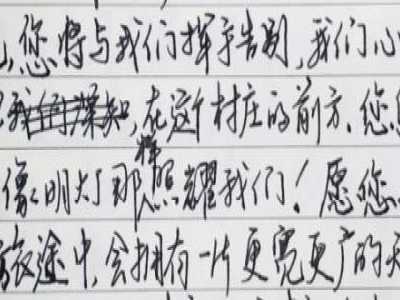 您将与我们挥手告别,我们心
我们深知,在这个村庄的前方、您
像明灯那样照耀我们!愿您
旅途中,会拥有一片更宽更广的天